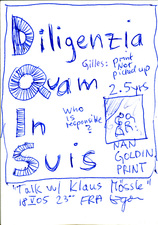 Diligenzia
Gilles: print
Not
picked up
Quam
2.5 yrs
Who
is
responsible
?
In
Suis
NAN
GOLDIN
PRINT
"Talk w/ Klaus Mössle"
18 V 05 23°° FRA